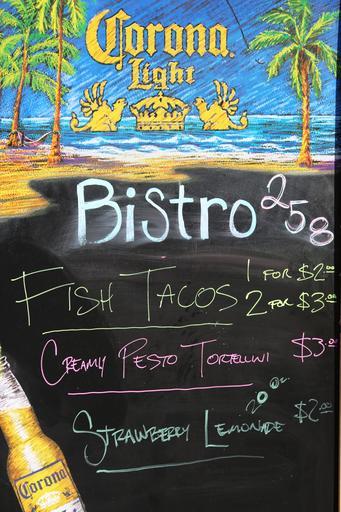 Corona.
Light
Bistro 258
Fish Tacos 1 for $2.00
2 for $3.00
Creamy Pesto Tortellini $3.00
Strawberry Lemonade $2.00
Corona